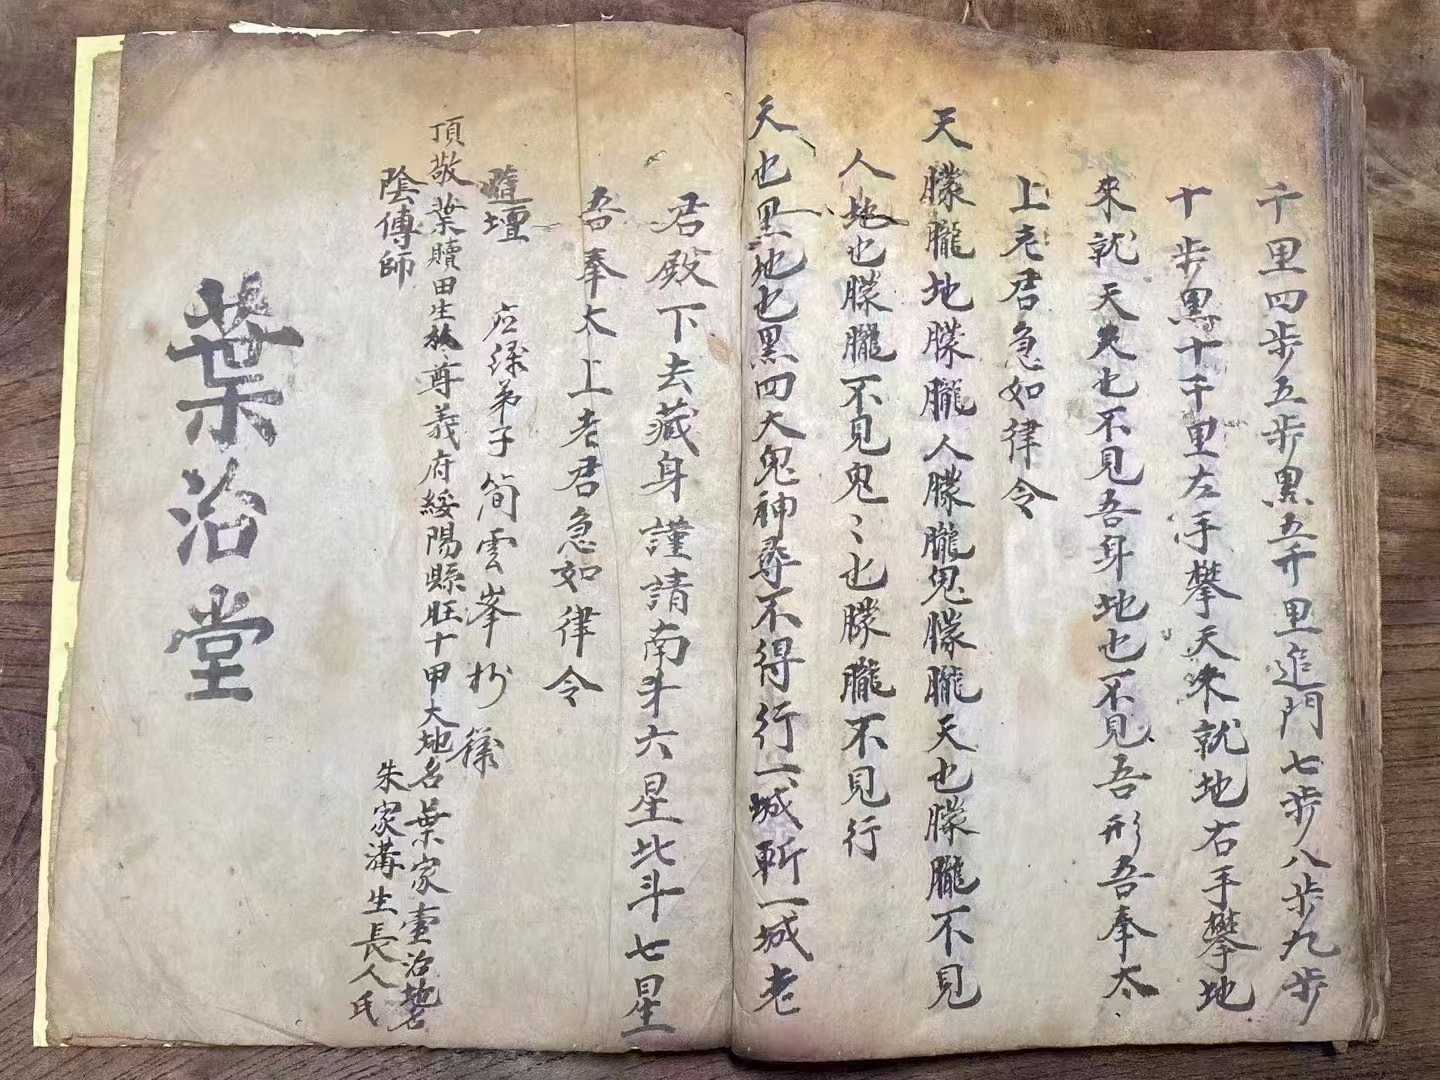 千里四步五步黑五千里追門七步八步九步
十步黑十千里左手攀天來就地右手攀地
來就天天也不見吾身地也不見吾形吾奉太
上老君急如律令
天朦朧地朦朧人朦朧鬼朦朧天也朦朧不見
人地也朦朧不見鬼〻也朦朧不見行
天也黑地也黑四大鬼神尋不得行一城斬一城老
君殿下去藏身謹請南斗六星北斗七星
吾奉太上老君急如律令
壇 弟子簡雲峯抄
頂敬葉贖田生於尊義府綏陽縣旺十甲大地名葉家壹治地名
朱家溝生長人氏
陰傳師
葉治堂